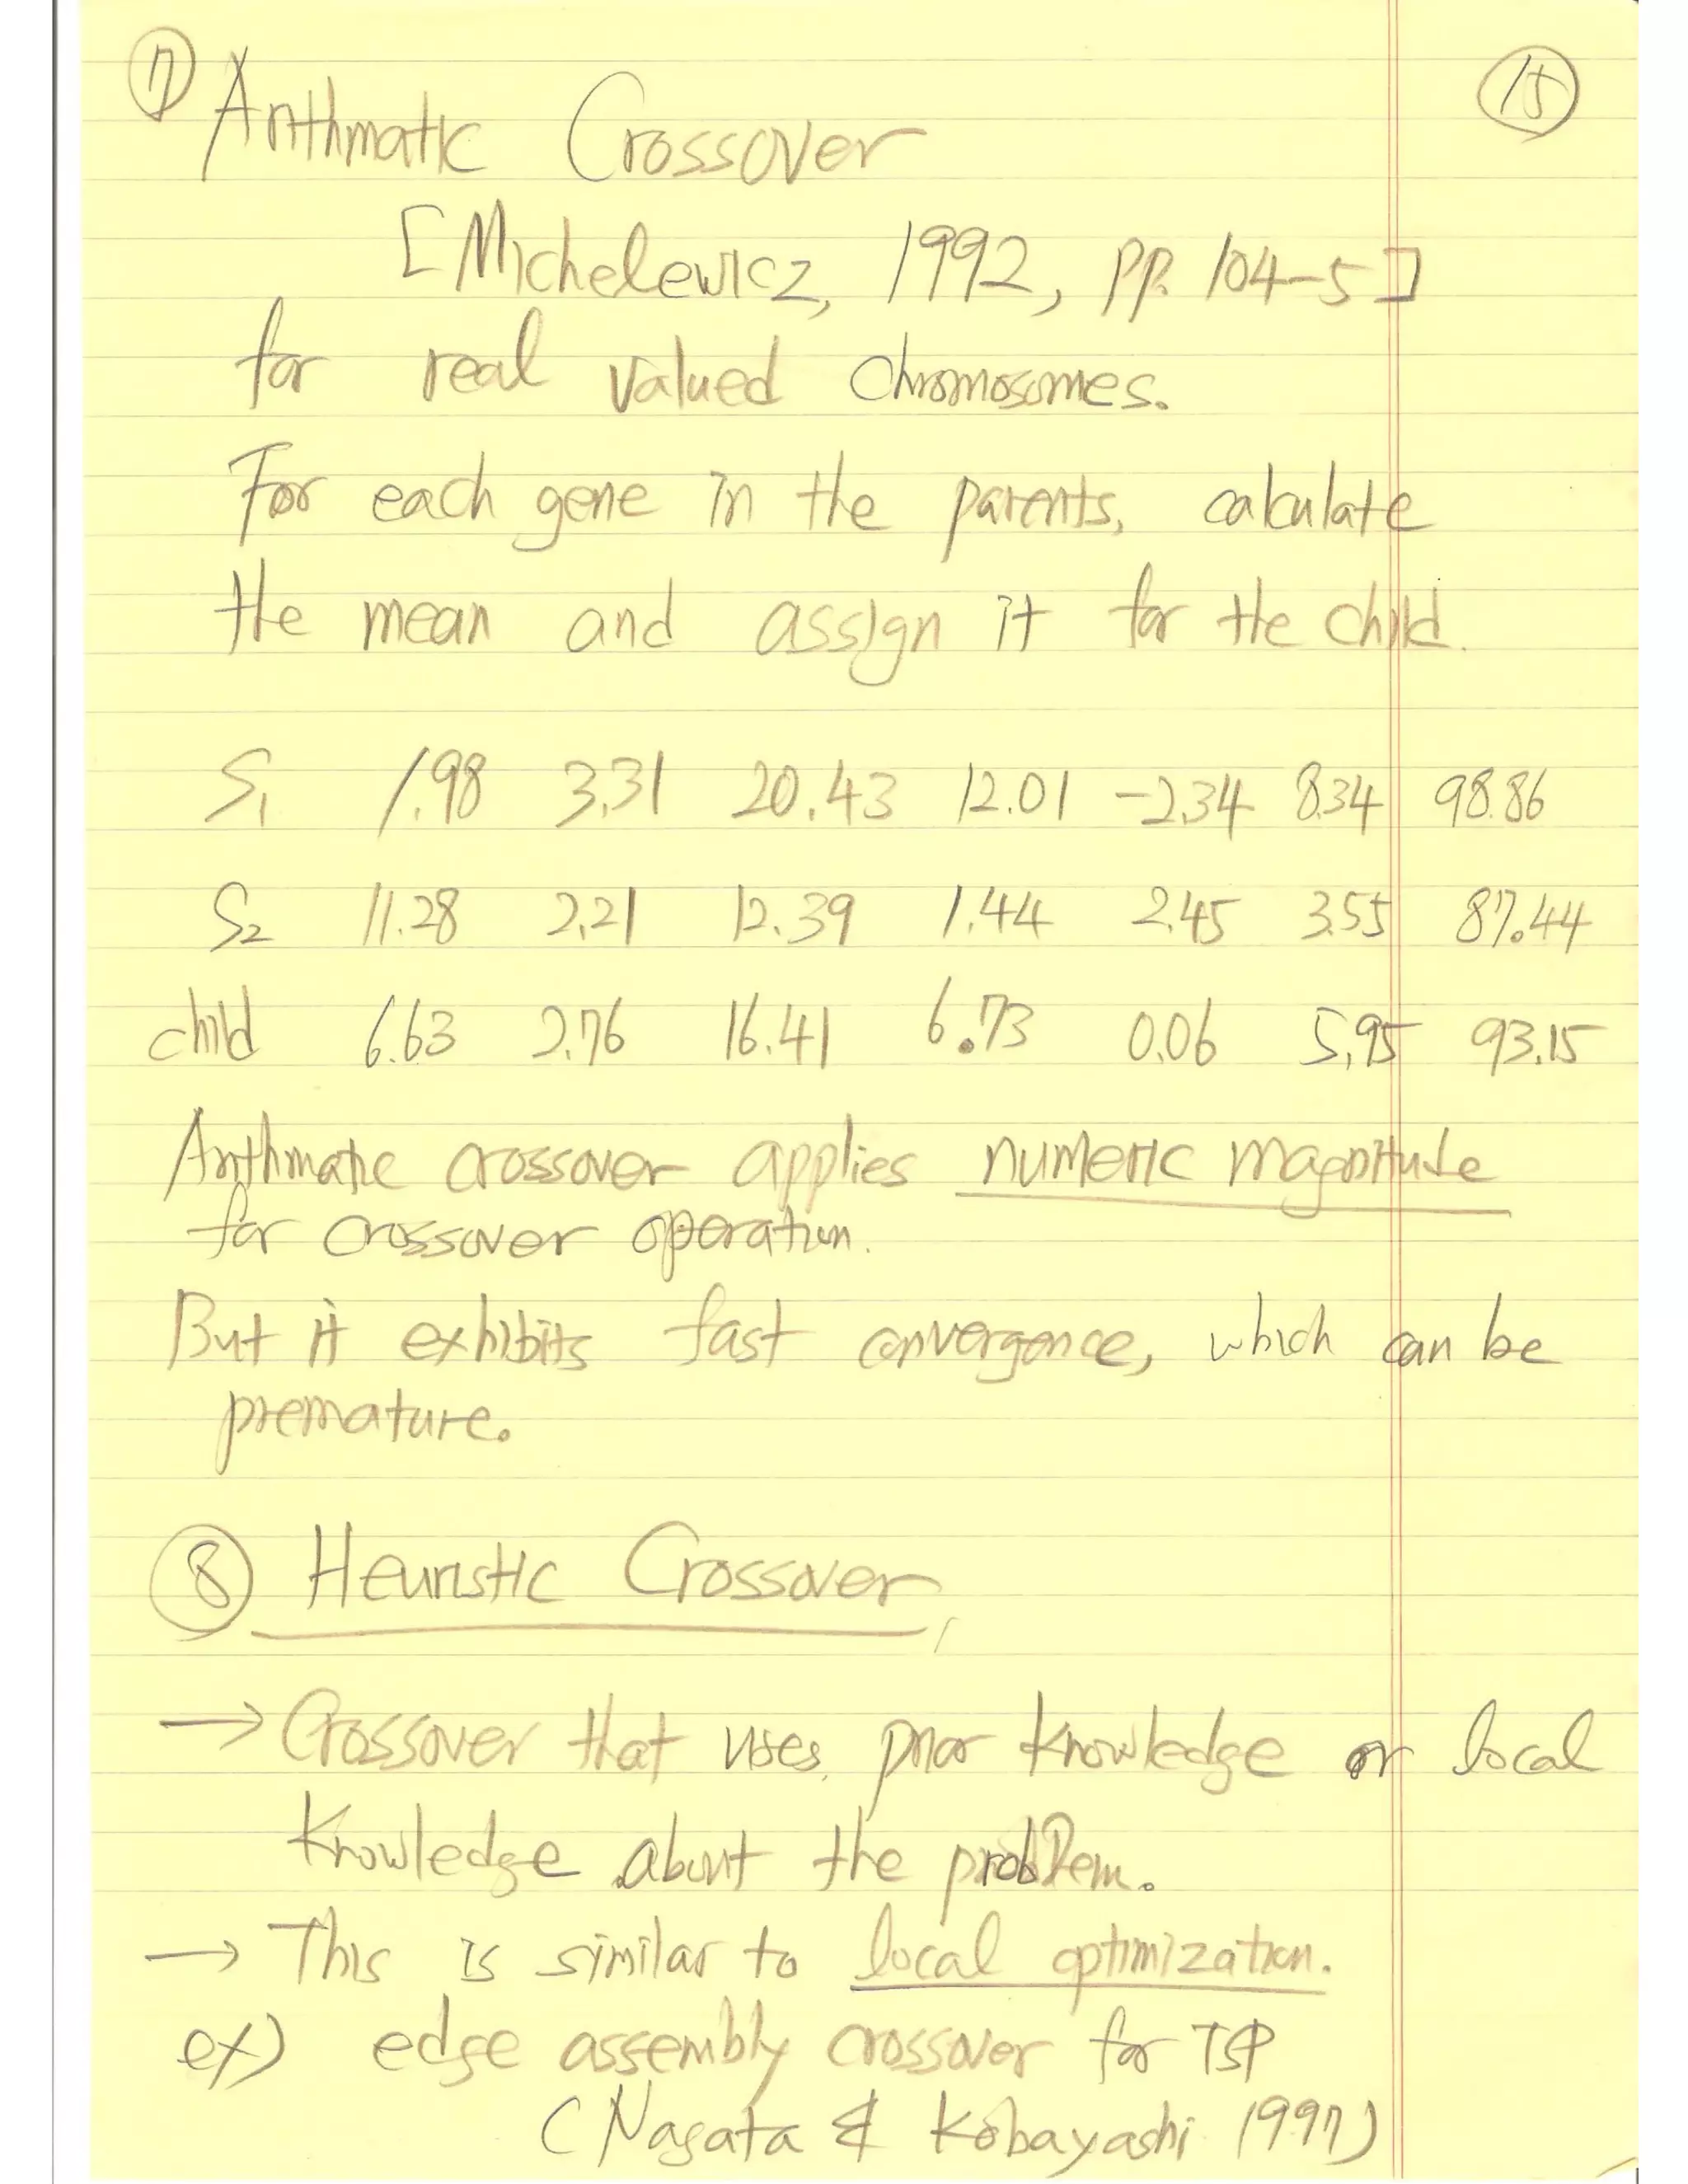 ⑦ Arithmatic Crossover
⑮
[Michelewicz, 1992, pp. 104-5]
for real valued chromosomes.
For each gene in the parents, calculate
the mean and assign it for the child.
S1 1.98 3.31 20.43 12.01 -2.34 8.34 98.86
S2 11.28 2.21 12.39 1.44 2.45 3.55 87.44
child 6.63 2.76 16.41 6.73 0.06 5.95 93.15
Arithmatic crossover applies numeric magnitude
for crossover operation.
But it exhibits fast convergence, which can be
premature.
⑧ Heuristic Crossover,
→ Crossover that uses prior knowledge or local
knowledge about the problem.
→ This is similar to local optimization.
ex) edge assembly crossover for TSP
(Nagata & Kobayashi 1997)